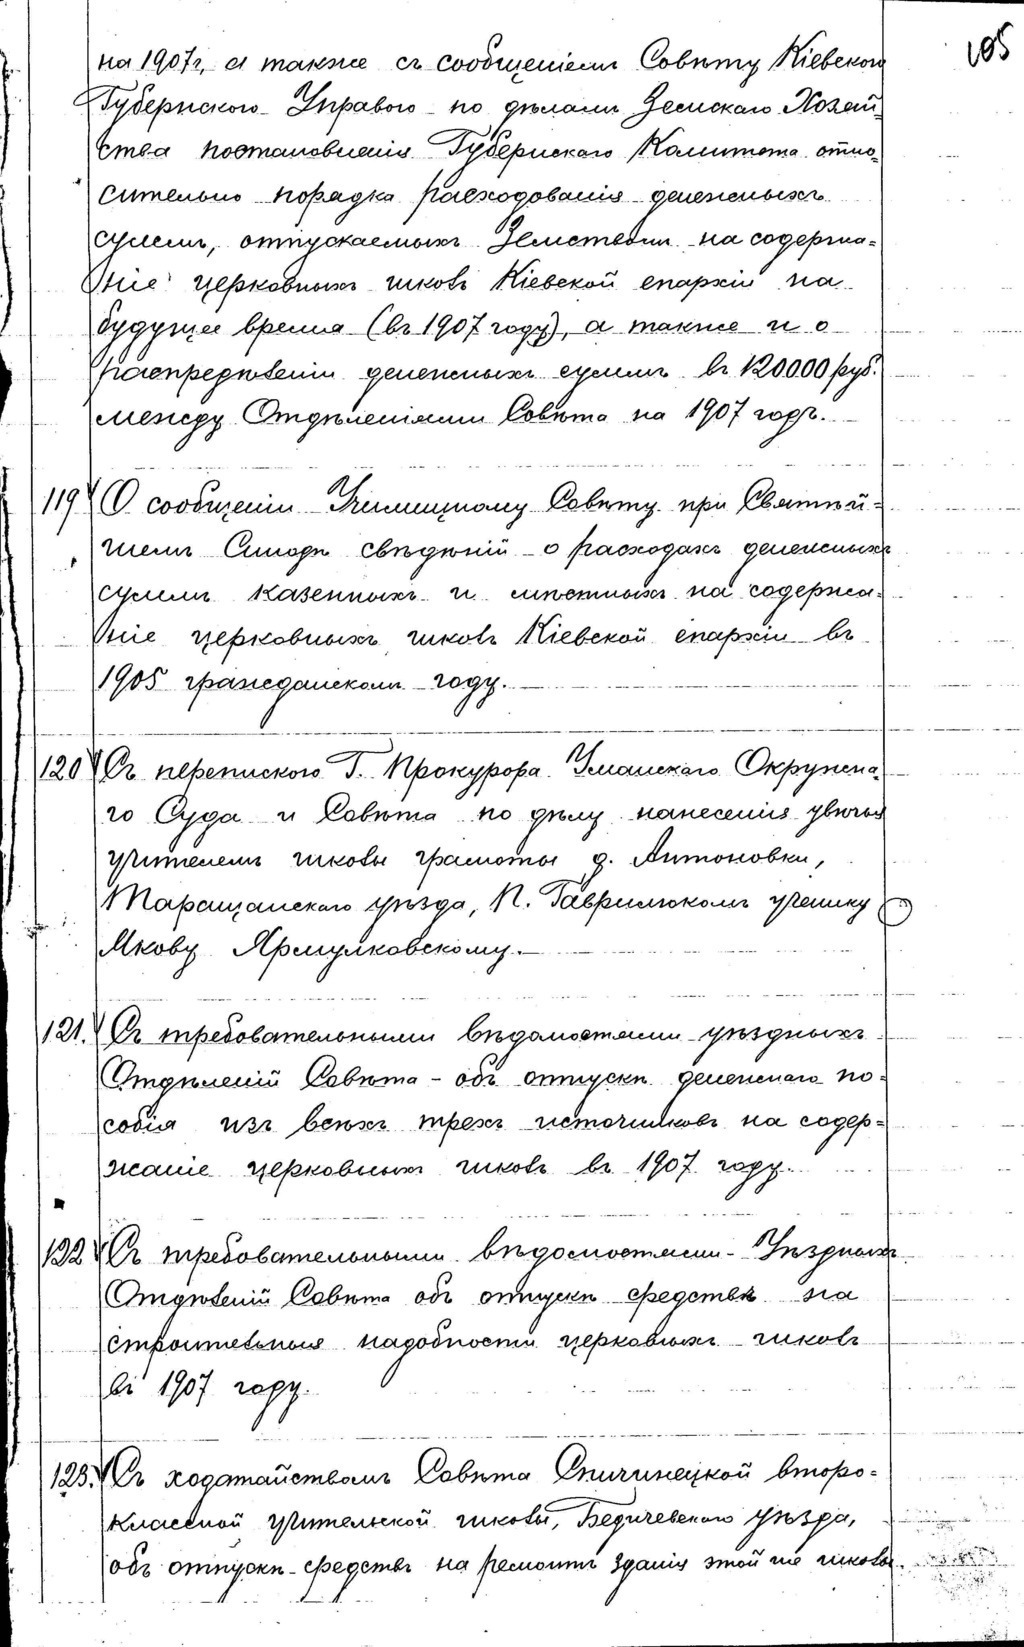 105
на 1907 г, а также съ сообщеніемъ Совѣту Кіевскою
Губернскою Управою по дѣламъ Земскаго Хозяй-
ства постановленія Губернскаго Комитета отно-
сительно порядка расходованія денежныхъ
суммъ, отпускаемыхъ Земствомъ на содержа-
ніе церковныхъ школъ Кіевской епархіи на
будущее время (въ 1907 году), а также и о
распредѣленіи денежныхъ суммъ въ 120000 руб.
между Отдѣленіями Совѣта на 1907 годъ.
119 О сообщеніи Училищному Совѣту при Святѣй-
шемъ Синодѣ свѣдѣній о расходахъ денежныхъ
суммъ казенныхъ и мѣстныхъ на содержа-
ніе церковныхъ школъ Кіевской епархіи въ
1905 гражданскомъ году.
120 Съ перепискою Г. Прокурора Уманскаго Окружна-
го Суда и Совѣта по дѣлу нанесенія увѣчья
учителемъ школы грамоты д. Антоновки,
Таращанскаго уѣзда, П. Гаврилюкомъ ученику
Якову Ярмулковскому.
121. Съ требовательными вѣдомостями уѣздныхъ
Отдѣленій Совѣта - объ отпускѣ денежнаго по-
собія изъ всѣхъ трехъ источниковъ на содер-
жаніе церковныхъ школъ въ 1907 году.
122 Съ требовательными вѣдомостями Уѣздныхъ
Отдѣленій Совѣта объ отпускѣ средствъ на
строительныя надобности церковныхъ школъ
въ 1907 году.
123. Съ ходатайствомъ Совѣта Спичинецкой второ-
классной учительской школы, Бердичевскаго уѣзда,
объ отпускѣ средствъ на ремонтъ зданія этой же школы.